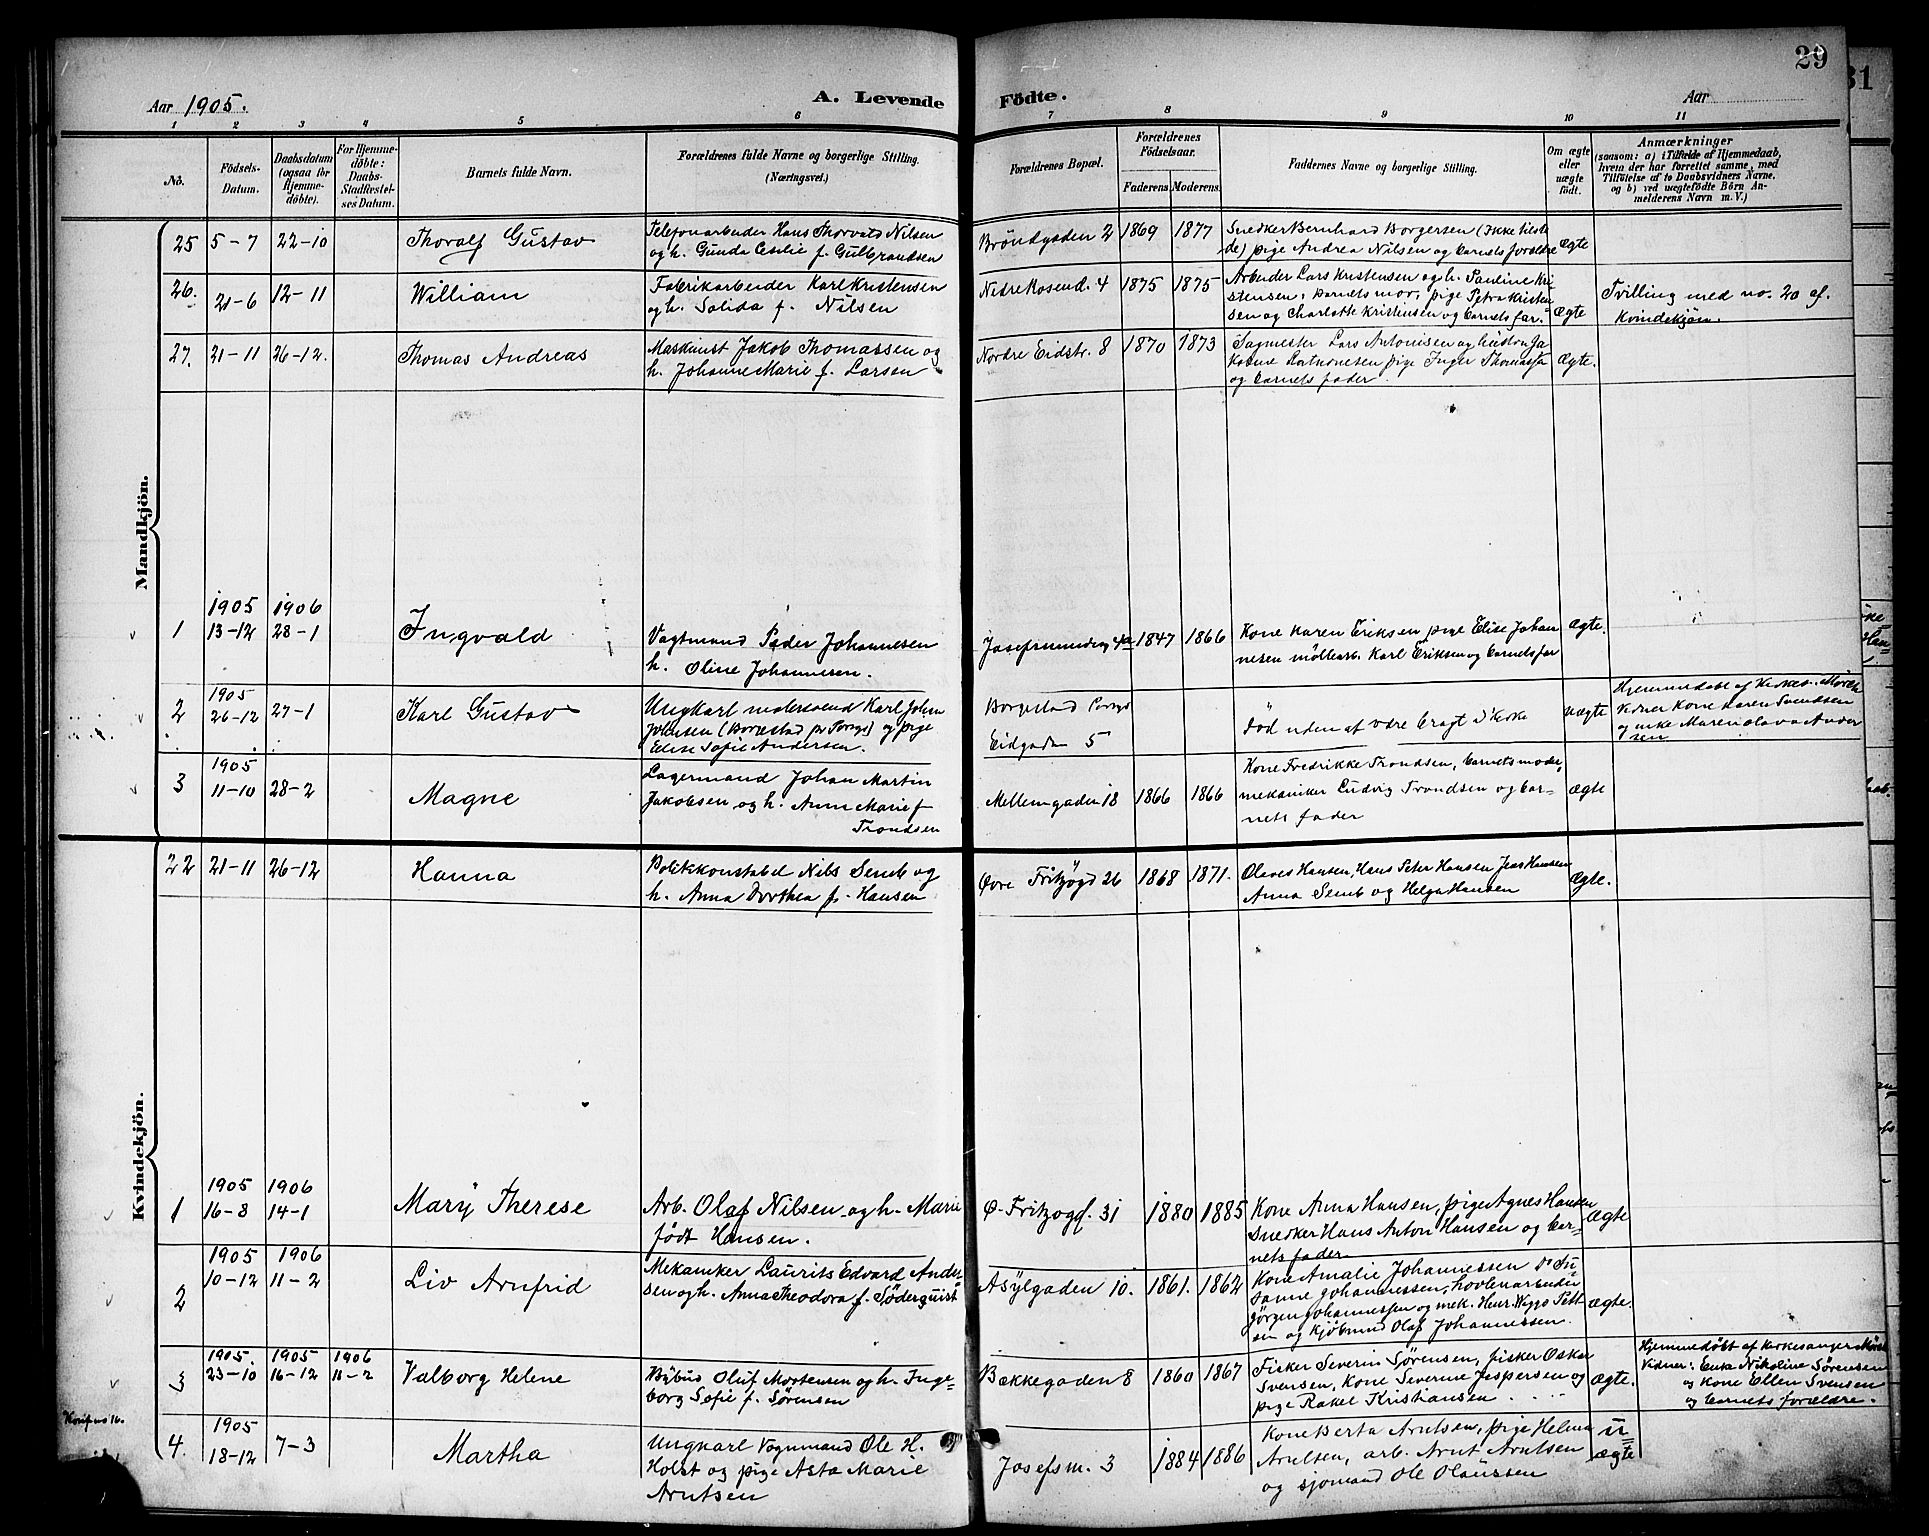 29
31
Aar 1905.
A. Levende Födte.
Aar
1 2 3 4 5 6 7 8 9 10 11
No.
Födsels-Datum.
Daabsdatum (ogsaa for Hjemme-døbte).
For Hjemme-døbte: Daabs-Stadfæstel-ses Datum.
Barnets fulde Navn.
Forældrenes fulde Navne og borgerlige Stilling.
(Næringsvei.)
Forældrenes Bopæl.
Forældrenes Födselsaar.
Faderens. Moderens.
Faddernes Navne og borgerlige Stilling.
Om ægte eller uægte födt.
Anmærkninger
(saasom: a) i Tilfælde af Hjemmedaab, hvem der har forrettet samme, med Tilföielse af to Daabsvidners Navne, og b) ved uægtefödte Börn An-melderens Navn m. V.)
Mandkjön.
25 5-7 22-10 Thoralf Gustav
Telefonarbeider Hans Thorvald Nilsen
og h. Gunda Cecilie f. Gulbrandsen
Bröndgaden 2 1869 1877
Snedker Bernhard Borgersen (ikke tilste
de) pige Andrea Nilsen og barnets forældre
ægte
26. 21-6 12-11 William
Fabrikarbeider Karl Kristensen
og h. Solida f. Nilsen
Nedre Rosend. 4 1875 1875
Arbeider Lars Kristensen og h. Pauline Kri-
stensen, barnets mor, pige Petra Kristen
sen og Charlotte Kristensen og barnets far.
ægte
Tvilling med no. 20 af.
Kvindekjön.
27. 21-11 26-12. Thomas Andreas
Maskinist Jakob Thomassen og
h. Johanne Marie f. Larsen
Nordre Eidstr. 8 1870 1873
Sagmester Lars Antonisen og hustru Ja
kobine pige Inger
og barnets fader.
ægte.
1 1905 13-12 1906 28-1 Ingvald
Vagtmand Peder Johannesen
h. Oline Johannesen.
4a 1847 1866
Kone Karen Eriksen pige Elise Johan
nesen möllearb. Karl Eriksen og barnets far
ægte.
2 1905 26-12 27-1 Karl Gustav
Ungkarl malersvend Karl John
Johnsen (Borgestad pr Porsgr) og pige
Elise Sofie Andersen.
Borgestad Porsgr
Eidgaden 5
Död uden at være bragt i kirke
uægte
Hjemmedöbt af
Vidner Kone Karen Svendsen
og enke Maren Olava Ander
sen
3 1905 11-10 28-2 Magne
Lagermand Johan Martin
Jakobsen og h. Anne Marie f
Trondsen
Mellemgaden 18 1866 1866
Kone Fredrikke Trondsen, barnets moder,
mekaniker Ludvig Trondsen og bar=
nets fader
ægte
Kvindekjön.
22 21-11 26-12 Hanna
Politikonstabel Nils Semb og
h. Anna Dorthea f. Hansen
Övre Fritzögd 26 1868 1871.
Olaves Hansen, Hans Peter Hansen Jens Hansen
Anna Semb og Helga Hansen
Ægte.
1 1905 16-8 1906 14-1 Mary Therese
Arb. Olaf Nilsen og h. Marie
født Hansen.
Ø. Fritzogd. 31 1880 1885
Kone Anna Hansen, pige Agnes Hansen
Snedker Hans Anton Hansen og bar-
nets fader
ægte
2 1905 10-12 1906 11-2 Liv Arnfrid
Mekaniker Laurits Edvard Ander
sen og h. Anna Theodora f. Söderquist
Asylgaden 10. 1861. 1862
Kone Amalie Johannessen Do Su
sanne Johannessen, hovlerarbeider
Jörgen Johannessen og mek. Henr. Viggo Pett
sen og kjöbmd Olaf Johannessen.
ægte.
3 1905. 23-10 1905 16-12 1906 11-2 Valborg Helene
Bybud Oluf Mortensen og h. Inge=
borg Sofie f. Sørensen
Bækkegaden 8 1860 1867
Fisker Severin Sørensen, fisker Oskar
Svensen, Kone Severine Jespersen og
pige Rakel Kristiansen
ægte.
Hjemmedøbt af kirkesanger
Vidner: Enke Nikoline Sørensen
og Kone Ellen Svensen
og barnets forældre.
4. 1905 18-12 7-3 Martha
Ungkarl Vognmand Ole H.
Holst og pige Asta Marie
Arntsen
Josefsm. 3 1884 1886
Kone Berta Arntsen, pige Helma
Arntsen, arb. Arnt Arntsen
og sjomand Ole Olaussen
u=
ægte